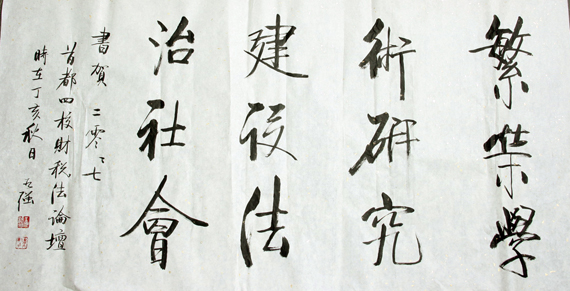 繁荣學
術研究
建设法
治社會
書贺二零零七
首都四校財税法論壇
時在丁亥秋日